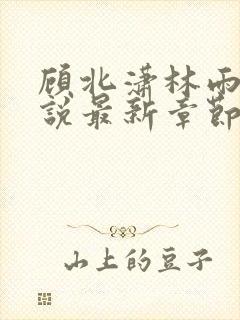 顾北潇林雨
说最新章节
山上的豆子